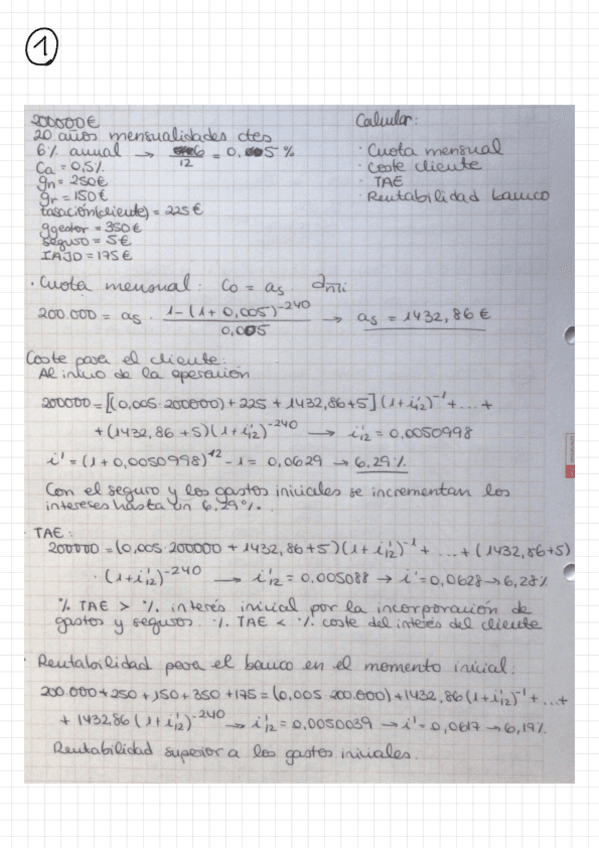 1
200000€
20 años mensualidades ctes
6% anual → 6/12 = 0,005 %
Ca = 0,5%
gn = 250€
gr = 150€
tasación(cliente) = 225€
ggestor = 350€
seguro = 5€
IAJD = 175€
Calcular:
· Cuota mensual
· Coste cliente
· TAE
· Rentabilidad banco
· Cuota mensual: Co = as · a n̅ i
200.000 = as · 1-(1+0,005)^-240 / 0,005 → as = 1432,86€
Coste para el cliente:
Al inicio de la operación
200000 = [(0,005·200000) + 225 + 1432,86+5] (1+i'12)^-1 + ... +
+ (1432,86+5)(1+i'12)^-240 → i'12 = 0,0050998
i' = (1+0,0050998)^12 - 1 = 0,0629 → 6,29%
Con el seguro y los gastos iniciales se incrementan los
intereses hasta un 6,29%.
· TAE:
200000 = (0,005·200000 + 1432,86+5)(1+i'12)^-1 + ... + (1432,86+5)
· (1+i'12)^-240 → i'12 = 0,005088 → i' = 0,0628 → 6,28%
% TAE > % interés inicial por la incorporación de
gastos y seguros. % TAE < % coste del interés del cliente
· Rentabilidad para el banco en el momento inicial:
200.000 + 250 + 150 + 350 + 175 = (0,005·200.000) + 1432,86(1+i'12)^-1 + ... +
+ 1432,86 (1+i'12)^-240 → i'12 = 0,0050039 → i' = 0,0617 → 6,17%
Rentabilidad superior a los gastos iniciales.